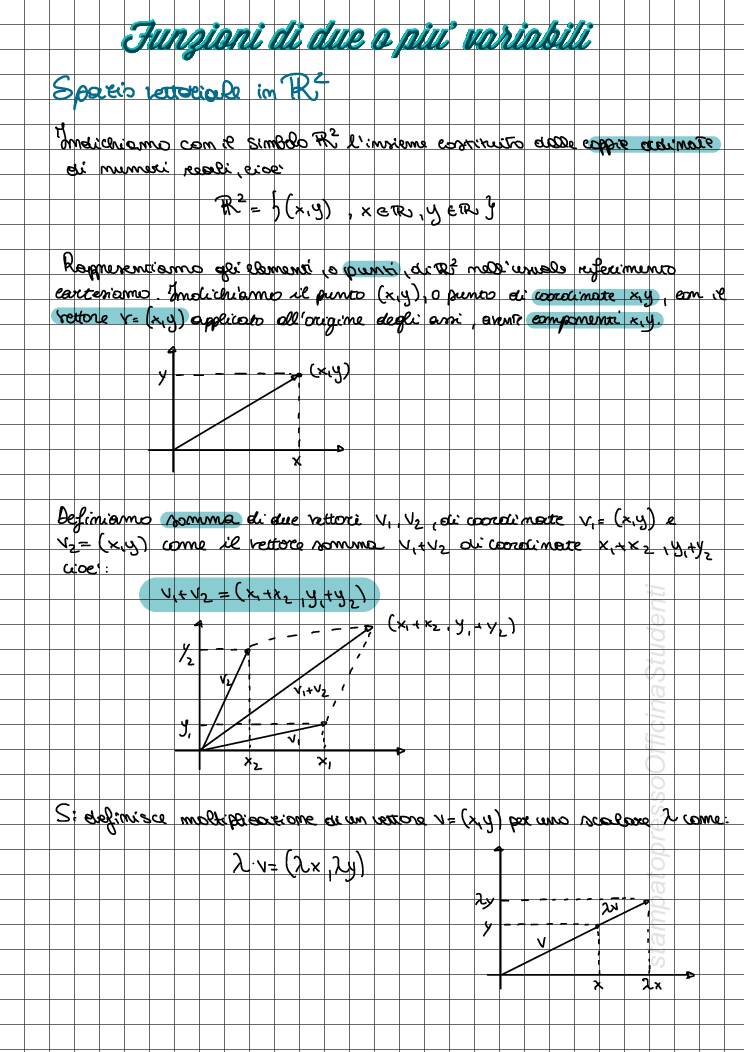 Funzioni di due o piu' variabili
Spazio vettoriale in ℝ²
Indichiamo con il simbolo ℝ² l'insieme costituito dalle coppie ordinate
di numeri reali, cioè:
ℝ² = {(x,y) , x ∈ ℝ, y ∈ ℝ}
Rappresentiamo gli elementi, o punti, di ℝ² nell'usuale riferimento
cartesiano. Indichiamo il punto (x,y), o punto di coordinate x,y, con il
vettore v=(x,y) applicato all'origine degli assi, avente componenti x,y.
y
(x,y)
x
Definiamo somma di due vettori v₁, v₂, di coordinate v₁=(x,y) e
v₂=(x,y) come il vettore somma v₁+v₂ di coordinate x₁+x₂, y₁+y₂
cioe':
v₁+v₂=(x₁+x₂, y₁+y₂)
(x₁+x₂, y₁+y₂)
y₂
v₂
v₁+v₂
y₁
v₁
x₂ x₁
Si definisce moltiplicazione di un vettore v=(x,y) per uno scalare λ come:
λ·v=(λx, λy)
λy
λv
y
v
x λx
stampatopressoOfficinaStudenti